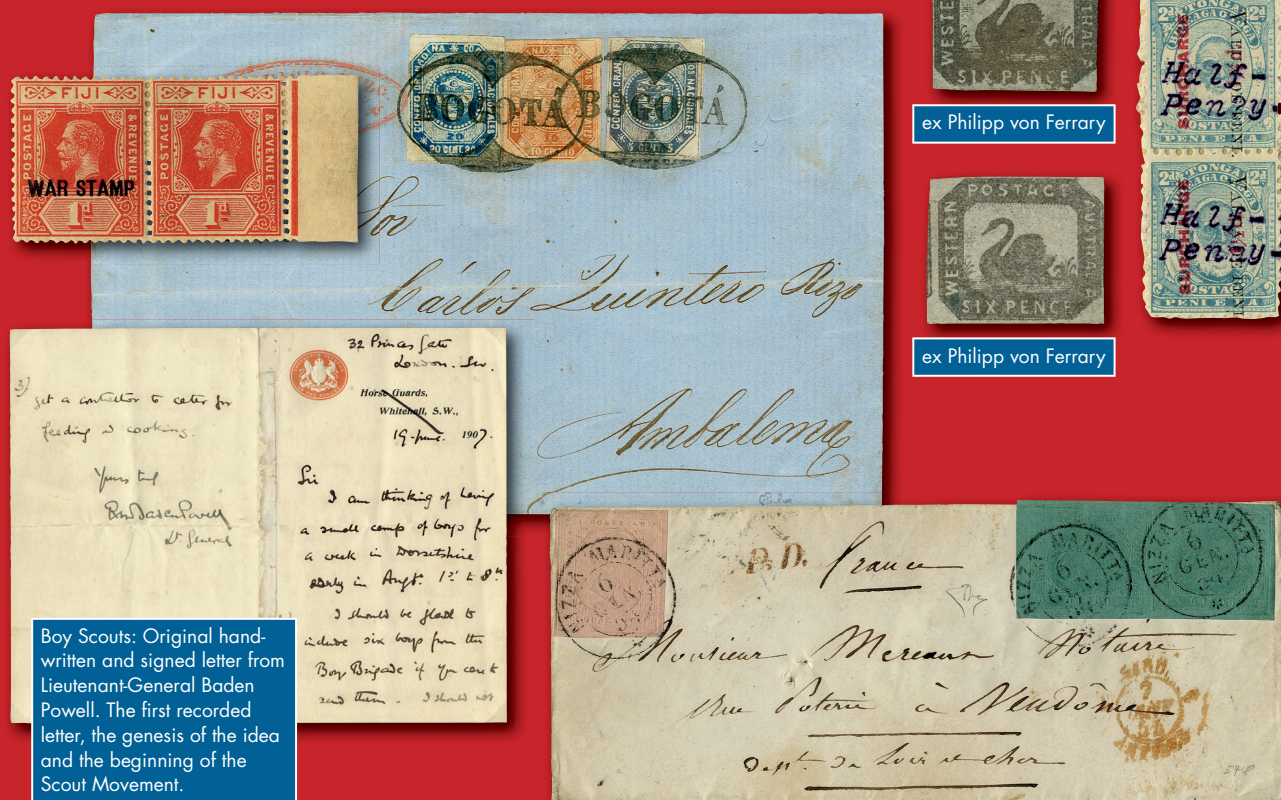 FIJI
FIJI
POSTAGE
& REVENUE
POSTAGE
& REVENUE
WAR STAMP
1d
1d
CONFED. GRANADINA * CORREOS NACIONALES
20
20 CENT. 20
10
10 CENT 10
CONFED. GRANADINA * CORREOS NACIONALES
5 CENT. 5
BOGOTÁ
BOGOTÁ
Sor
Cárlos Quintero Rizo
Ambalema
WESTERN
AUSTRALIA
SIX PENCE
ex Philipp von Ferrary
POSTAGE
WESTERN
AUSTRALIA
SIX PENCE
ex Philipp von Ferrary
2d TONGA 2d
SURCHARGE
Half-
Penny-
POSTAGE
PENI E UA
SURCHARGE
Half-
Penny-
POSTAGE
PENI E UA
3)
get a contractor to cater for
feeding & cooking.
Yours truly
RSS Baden Powell
Lt General
32 Princes Gate
London. SW.
Horse Guards,
Whitehall, S.W.,
19 June 1907.
Sir
I am thinking of having
a small camp of boys for
a week in Dorsetshire
early in Augt. 1st to 8th
I should be glad to
include six boys from the
Boys Brigade if you care to
send them. I should not
Boy Scouts: Original hand-
written and signed letter from
Lieutenant-General Baden
Powell. The first recorded
letter, the genesis of the idea
and the beginning of the
Scout Movement.
NIZZA MARITTA
6
GEN
P.D.
France
NIZZA MARITTA
6
GEN
NIZZA MARITTA
6
GEN
Monsieur Mereaux Notaire
rue Poterie à Vendôme
dept. de Loir et Cher